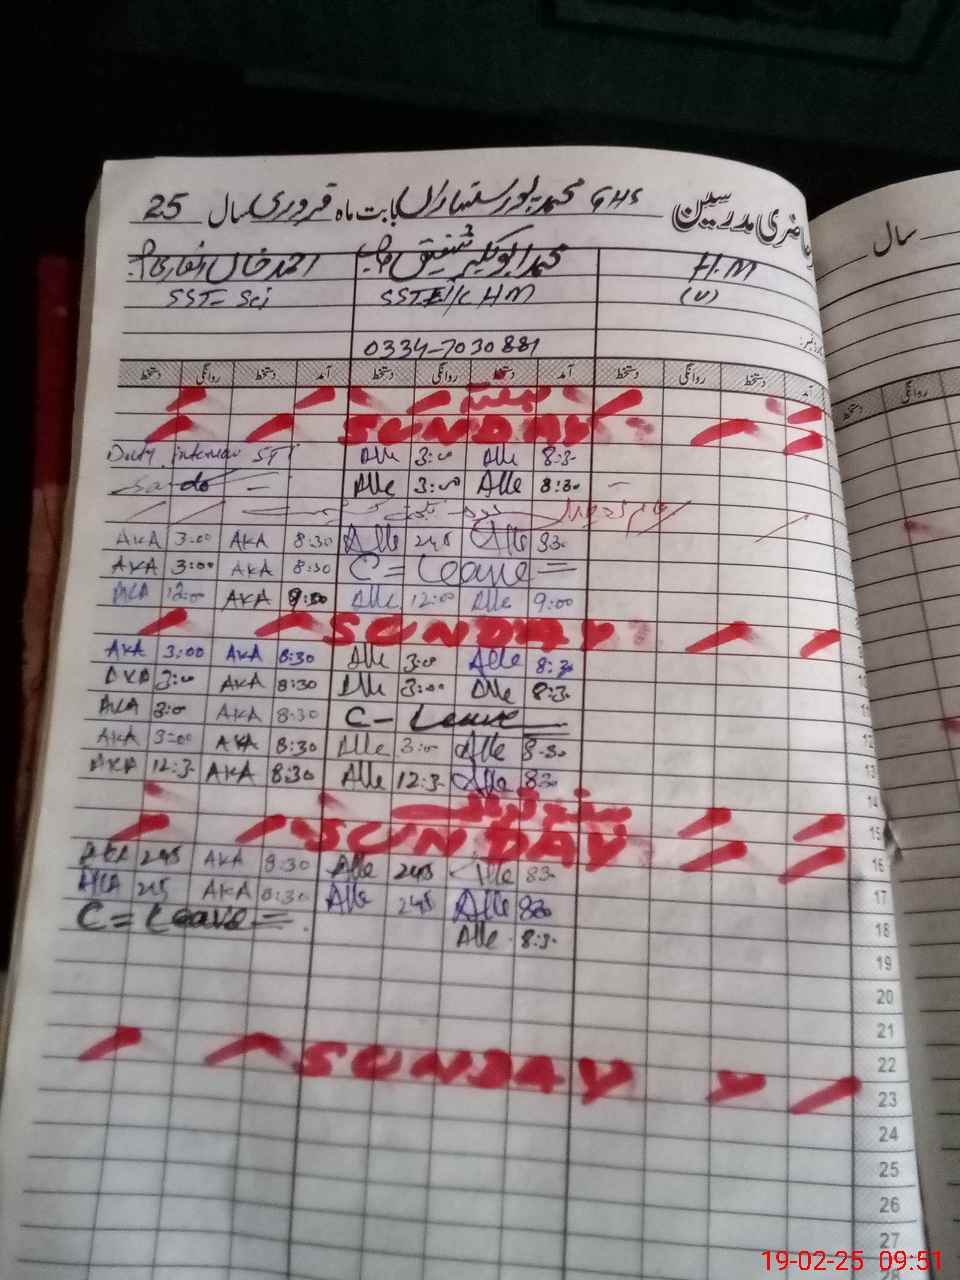 حاضری مدرسین GHS محمد پور سنہاراں بابت ماہ فروری سال 25
سال
H.M محمد ابوبکر شفیق احمد خان
(V) SST I/C HM SST-Sci
0334-7030881
آمد دستخط روانگی دستخط آمد دستخط روانگی دستخط آمد دستخط روانگی دستخط
روانگی دستخط
ہفتہ
SUNDAY
Duty interview ST Alle 3:00 Alle 8:30
Sando Alle 3:00 Alle 8:30
AKA 3:00 AKA 8:30 Alle 245 Alle 830
AKA 3:00 AKA 8:30 C = Leave =
AKA 12:0 AKA 9:00 Alle 12:00 Alle 9:00
SUNDAY
AKA 3:00 AKA 8:30 Alle 3:0 Alle 8:30
AKA 3:0 AKA 8:30 Alle 3:00 Alle 8:3
AKA 3:0 AKA 8:30 C - Leave 11
AKA 3:00 AKA 8:30 Alle 3:0 Alle 8:30 12
AKA 12:3 AKA 8:30 Alle 12:3 Alle 830 13
14
SUNDAY 15
AKA 245 AKA 8:30 Alle 245 Alle 830 16
AKA 245 AKA 8:30 Alle 245 Alle 830 17
C = Leave = Alle 8:3 18
19
20
21
22
SUNDAY 23
24
25
26
27
19-02-25 09:51